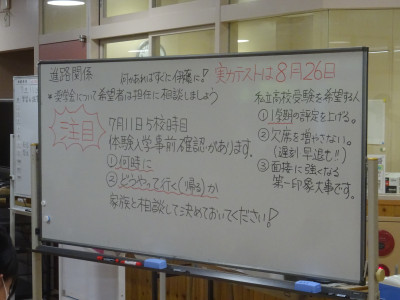 進路関係
何かあればすぐに伊藤に!
実力テストは8月26日
*奨学金について希望者は担任に相談しましょう
注目
7月11日5校時目
体験入学事前確認があります。
①何時に
②どうやって行く(帰る)か
家族と相談して決めておいてください!
私立高校受験を希望する人
①1学期の評定を上げる。
②欠席を増やさない。
(遅刻早退も!!)
③面接に強くなる
第一印象大事です。